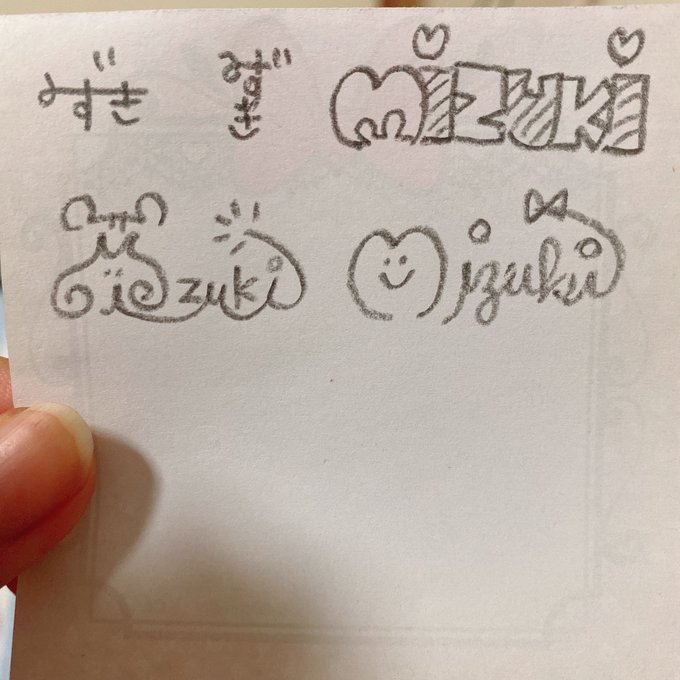 みずき みずき MIZUKI
Mizuki Mizuki